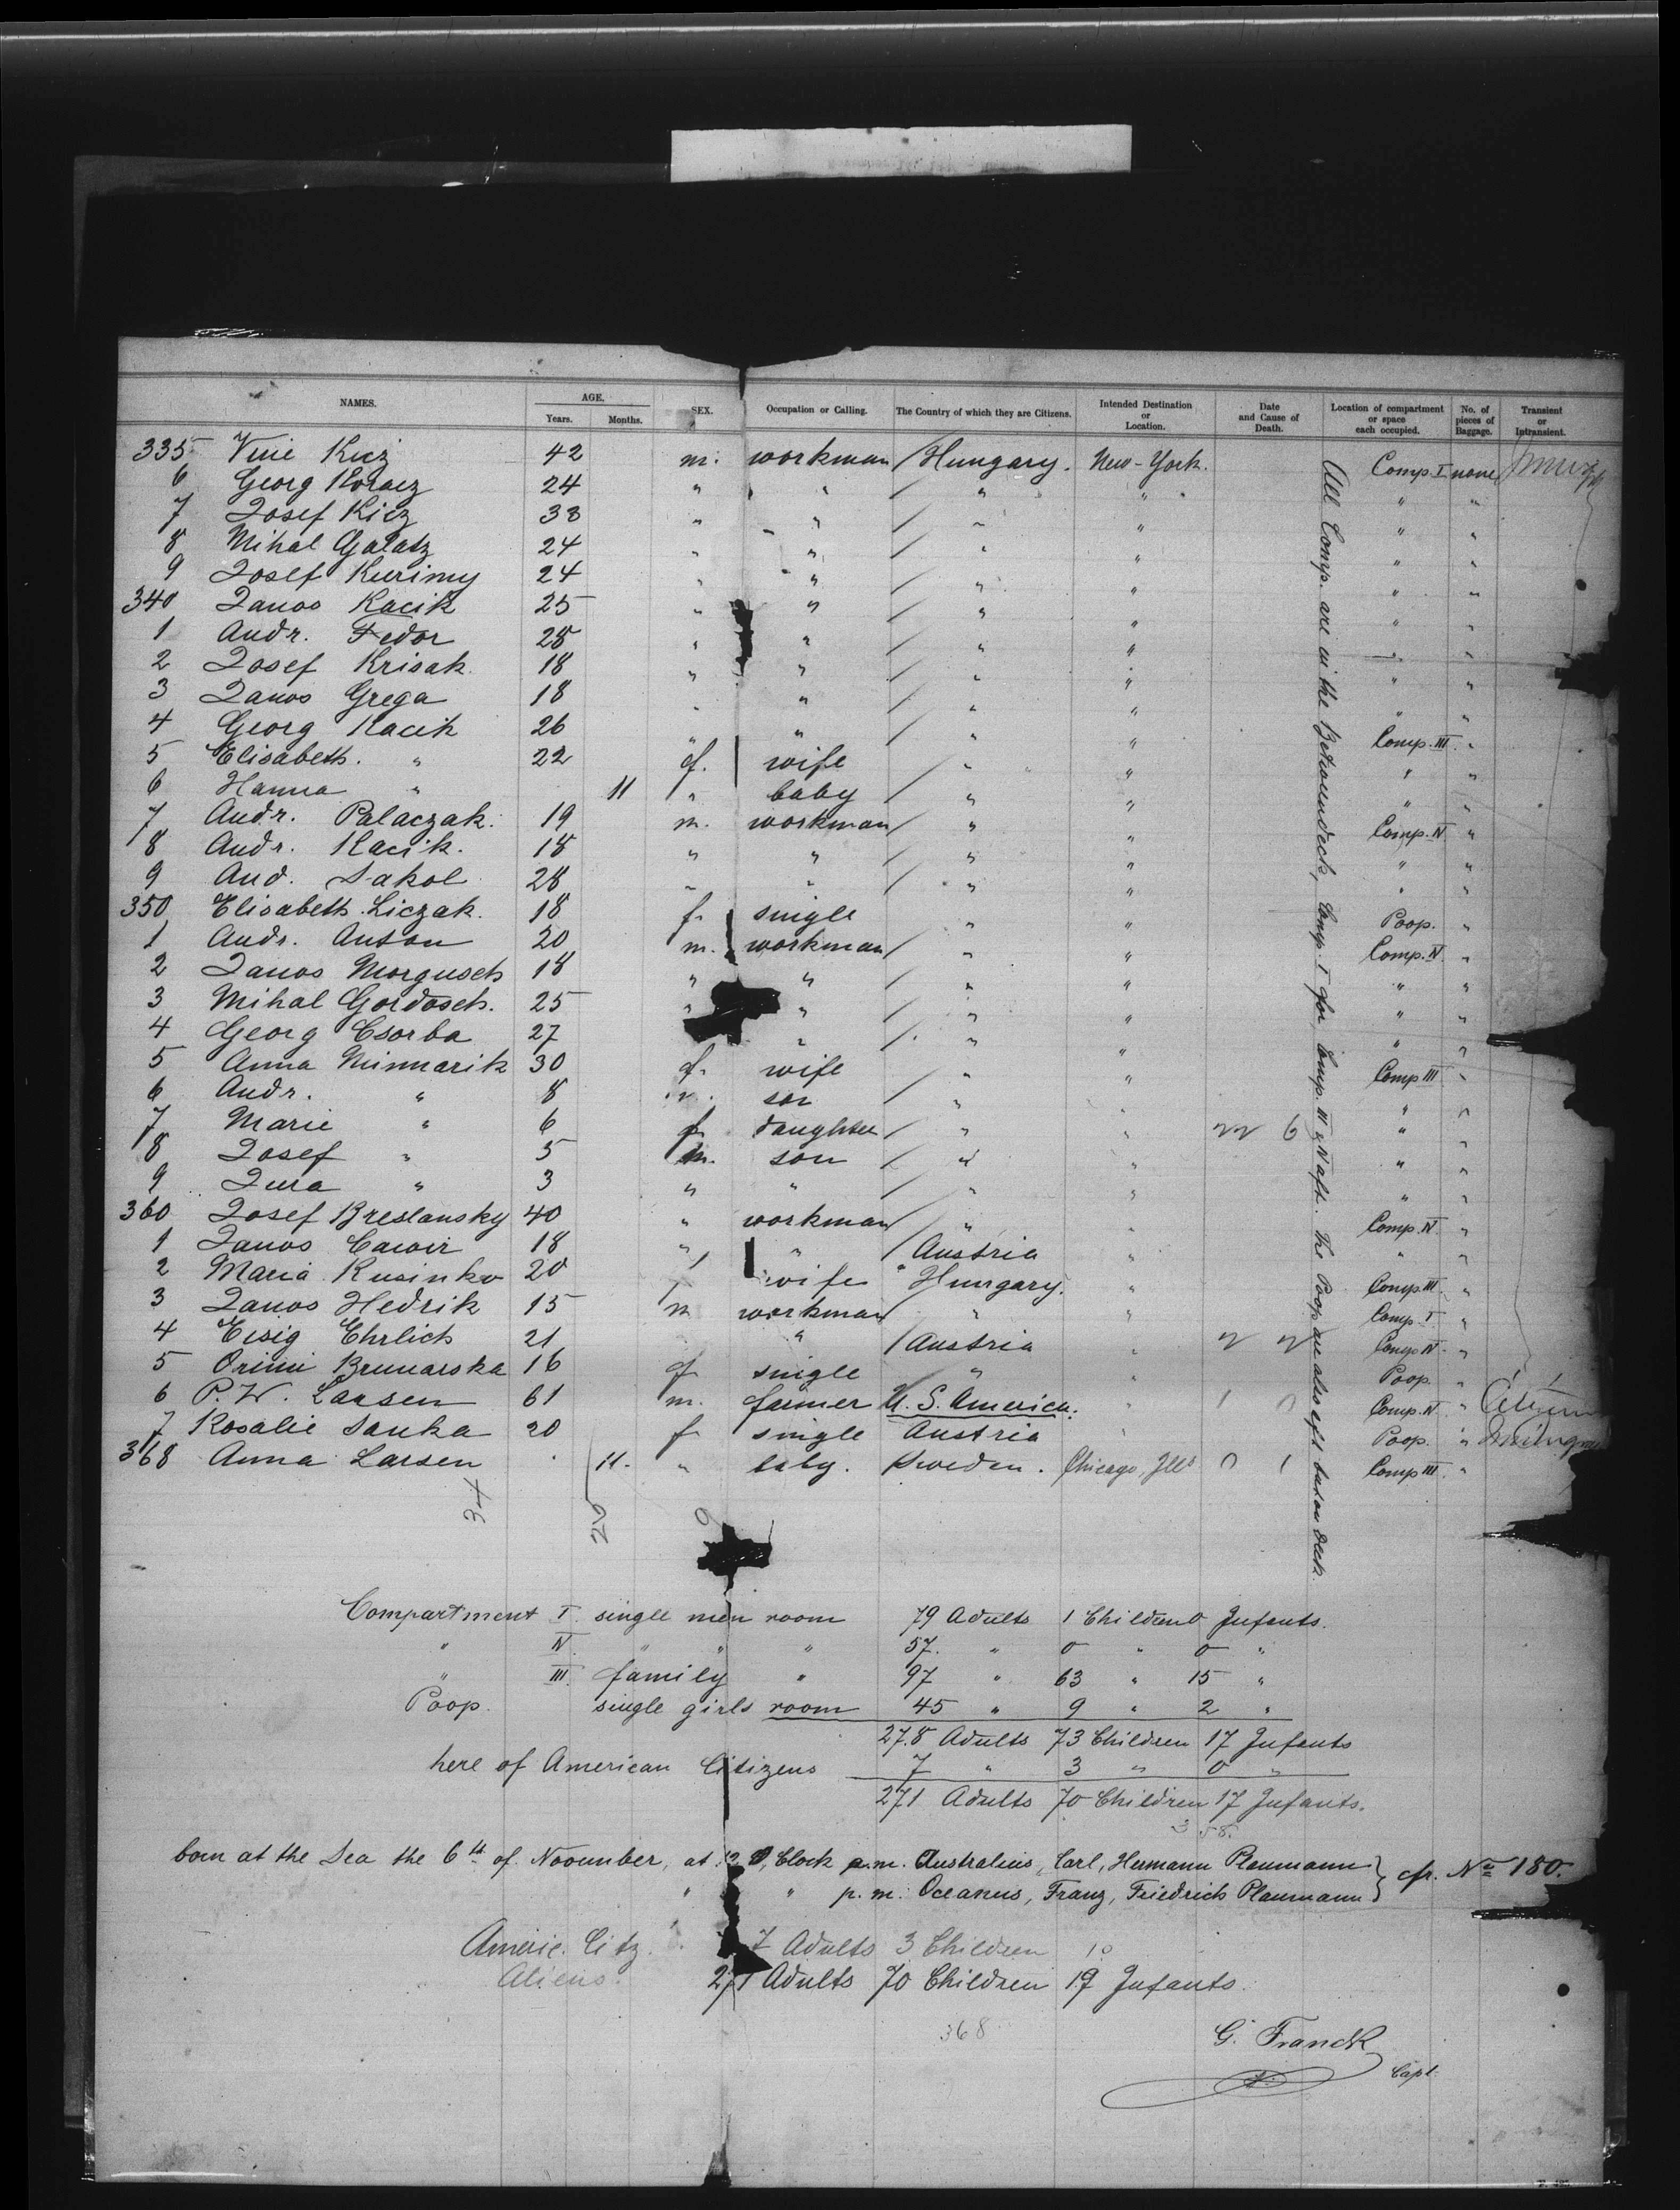 NAMES. AGE. SEX. Occupation or Calling. The Country of which they are Citizens. Intended Destination or Location. Date and Cause of Death. Location of compartment or space each occupied. No. of pieces of Baggage. Transient or Intransient.
Years. Months.
335 Kicz 42 m. workman / Hungary. New-York. Comp. I none
6 Georg 24 " " / " " " "
7 Josef Kicz 38 " " / " " " "
8 Mihal Galatz 24 " " / " " " "
9 Josef Kurimy 24 " " / " " " "
340 Janos Kacik 25 " " / " " " "
1 Andr. Fedor 28 " " / " " " "
2 Josef Krisak 18 " " / " " " "
3 Janos Grega 18 " " / " " " "
4 Georg Kacik 26 " " / " " Comp. III "
5 Elisabeth " 22 f. wife / " " " "
6 Hanna " 11 " baby / " " " "
7 Andr. Palaczak. 19 m. workman / " " Comp. IV "
8 Andr. Kacik. 18 " " / " " " "
9 And. Sakol 28 " " / " " " "
350 Elisabeth Liczak. 18 f. single " " Poop. "
1 Andr. Anton 20 m. workman / " " Comp. IV "
2 Janos Morgusch 18 " " / " " " "
3 Mihal Gordosch. 25 " " / " " " "
4 Georg Csorba 27 " / " " " "
5 Anna Minnarik 30 f. wife " " Comp III "
6 Andr. " 8 m. son / " " " "
7 Marie " 6 f daughter / " " " "
8 Josef " 5 m. son / " " " "
9 Jura " 3 " " / " " " "
360 Josef Breslansky 40 " workman / " " Comp. IV "
1 Janos 18 " " / Austria " " "
2 Maria Kusinko 20 f wife " Hungary. " Comp. III "
3 Janos Hedrik 15 m workman " " Comp. I "
4 Eisig Ehrlich 21 " / Austria " Comp IV "
5 Brunarska 16 f single " " Poop. "
6 P. W. Larsen 61 m. farmer U. S. America. " Comp. IV "
7 Rosalie Sanka 20 f single Austria " Poop. "
368 Anna Larsen 11. " baby. Sweden. Chicago, Ills Comp III "
All Comp. are in the Betweendeck, Comp. I for, Comp. III & IV aft. the Poop are also aft but on deck.
Compartment I. single men room 79 Adults 1 Children 0 Infants.
" IV. " " " 57. " 0 " 0 "
" III. family " 97 " 63 " 15 "
Poop. single girls room 45 " 9 " 2 "
278 Adults 73 Children 17 Infants
here of American Citizens 7 " 3 " 0 "
271 Adults 70 Children 17 Infants.
358.
born at the Sea the 6th of November, at 12 O'Clock a.m. Australius, Carl, Hermann Plaumann } cfr. No 180.
" " p.m. Oceanus, Franz, Friedrich Plaumann
Americ. Citz. 7 Adults 3 Children
Aliens. 271 Adults 70 Children 19 Infants.
368
G. Franck
Capt.